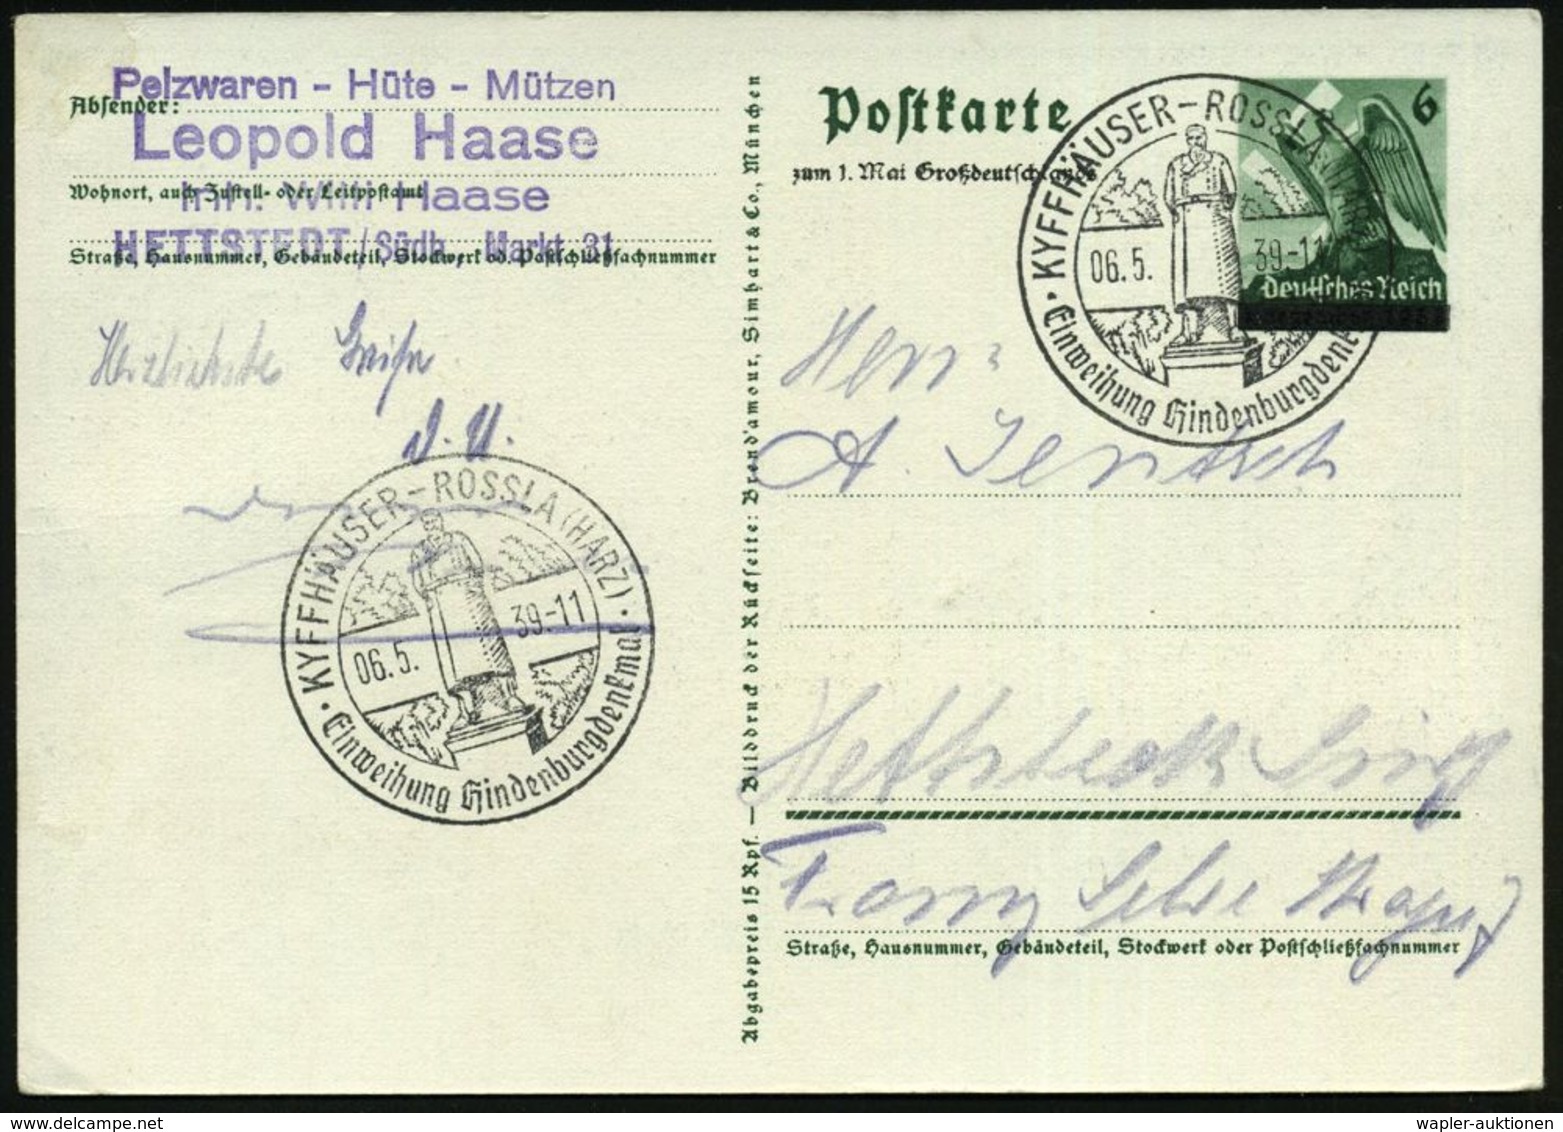 Pelzwaren - Hüte - Mützen
Absender:
Leopold Haase
Wohnort, auch Zustell- oder Leitpostamt
Inh. Willi Haase
HETTSTEDT/Südh., Markt 31
Straße, Hausnummer, Gebäudeteil, Stockwerk od. Postschließfachnummer
Herzlichste Grüße
KYFFHÄUSER-ROSSLA (HARZ)
06.5. 39.-11
Einweihung Hindenburgdenkmal
Abgabepreis 15 Rpf. — Bilddruck der Rückseite: Brend'amour, Simhart & Co., München
Postkarte
zum 1. Mai Großdeutschlands
6
Deutsches Reich
KYFFHÄUSER-ROSSLA (HARZ)
06.5. 39.-11
Einweihung Hindenburgdenkmal
Herrn
A. Jentzsch
Straße, Hausnummer, Gebäudeteil, Stockwerk oder Postschließfachnummer
wapler-auktionen